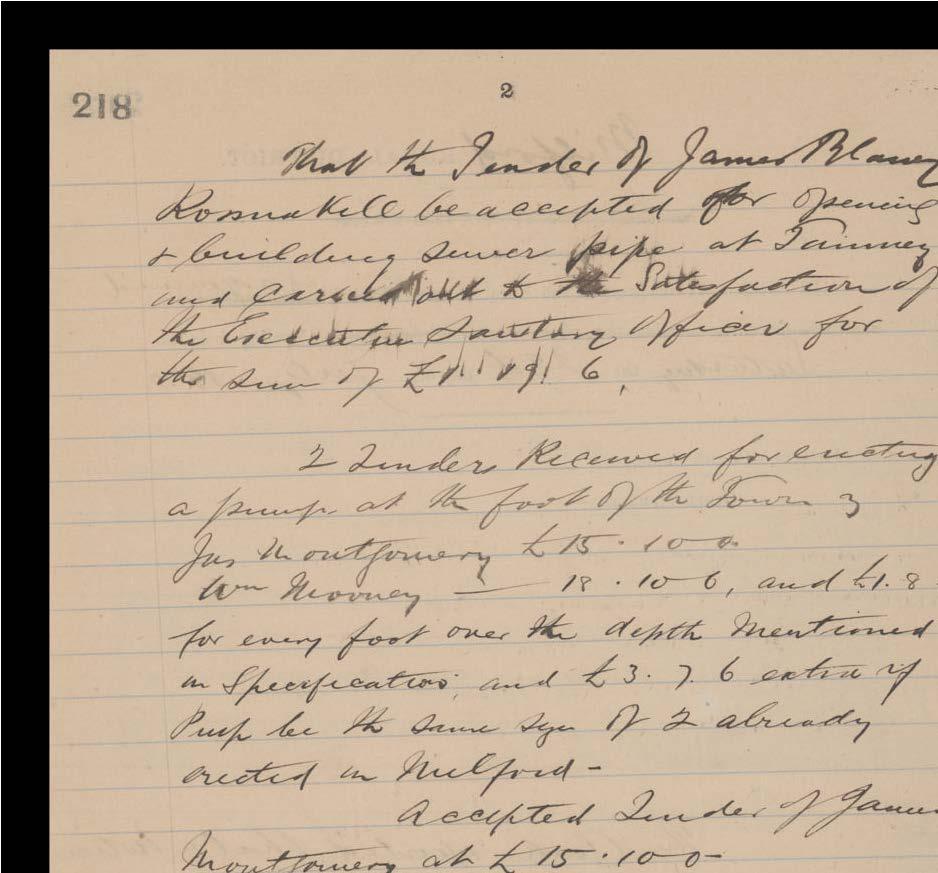 218
2
That the Tender of James Blaney
Rosnakill be accepted for opening
& building sewer pipe at Tamney
and carried out to the Satisfaction of
the Executive Sanitary Officer for
the sum of £ 19 6.
2 Tenders Received for erecting
a pump at the foot of the Town
Jas Montgomery £15.10 0
Wm Mooney — 18.10 6, and £1.8
for every foot over the depth Mentioned
in Specification, and £3.7.6 extra if
Pump be the same size of 2 already
erected in Milford -
Accepted Tender of James
Montgomery at £15.10 0 -